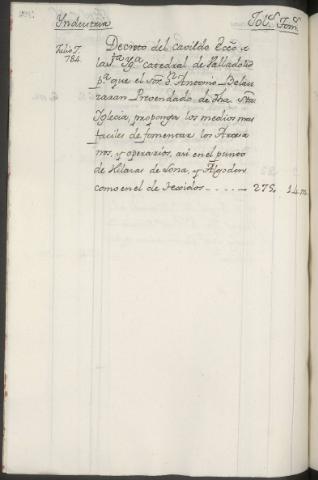 Yndustria Fol.s Tom.
Julio 7. Decreto del cavildo Ecco, a
784. la S.ta Yg.a catedral de Valladolid
p.a que el Sor. Dn. Antonio Belau
zaran Prevendado de dha. Sta.
Iglesia, proponga los medios mas
faciles de fomentar los Artesa
nos, y operarios, asi en el punto
de Hilazas de Lana, y Algodon
como en el de texidos - - - - - 275, 14